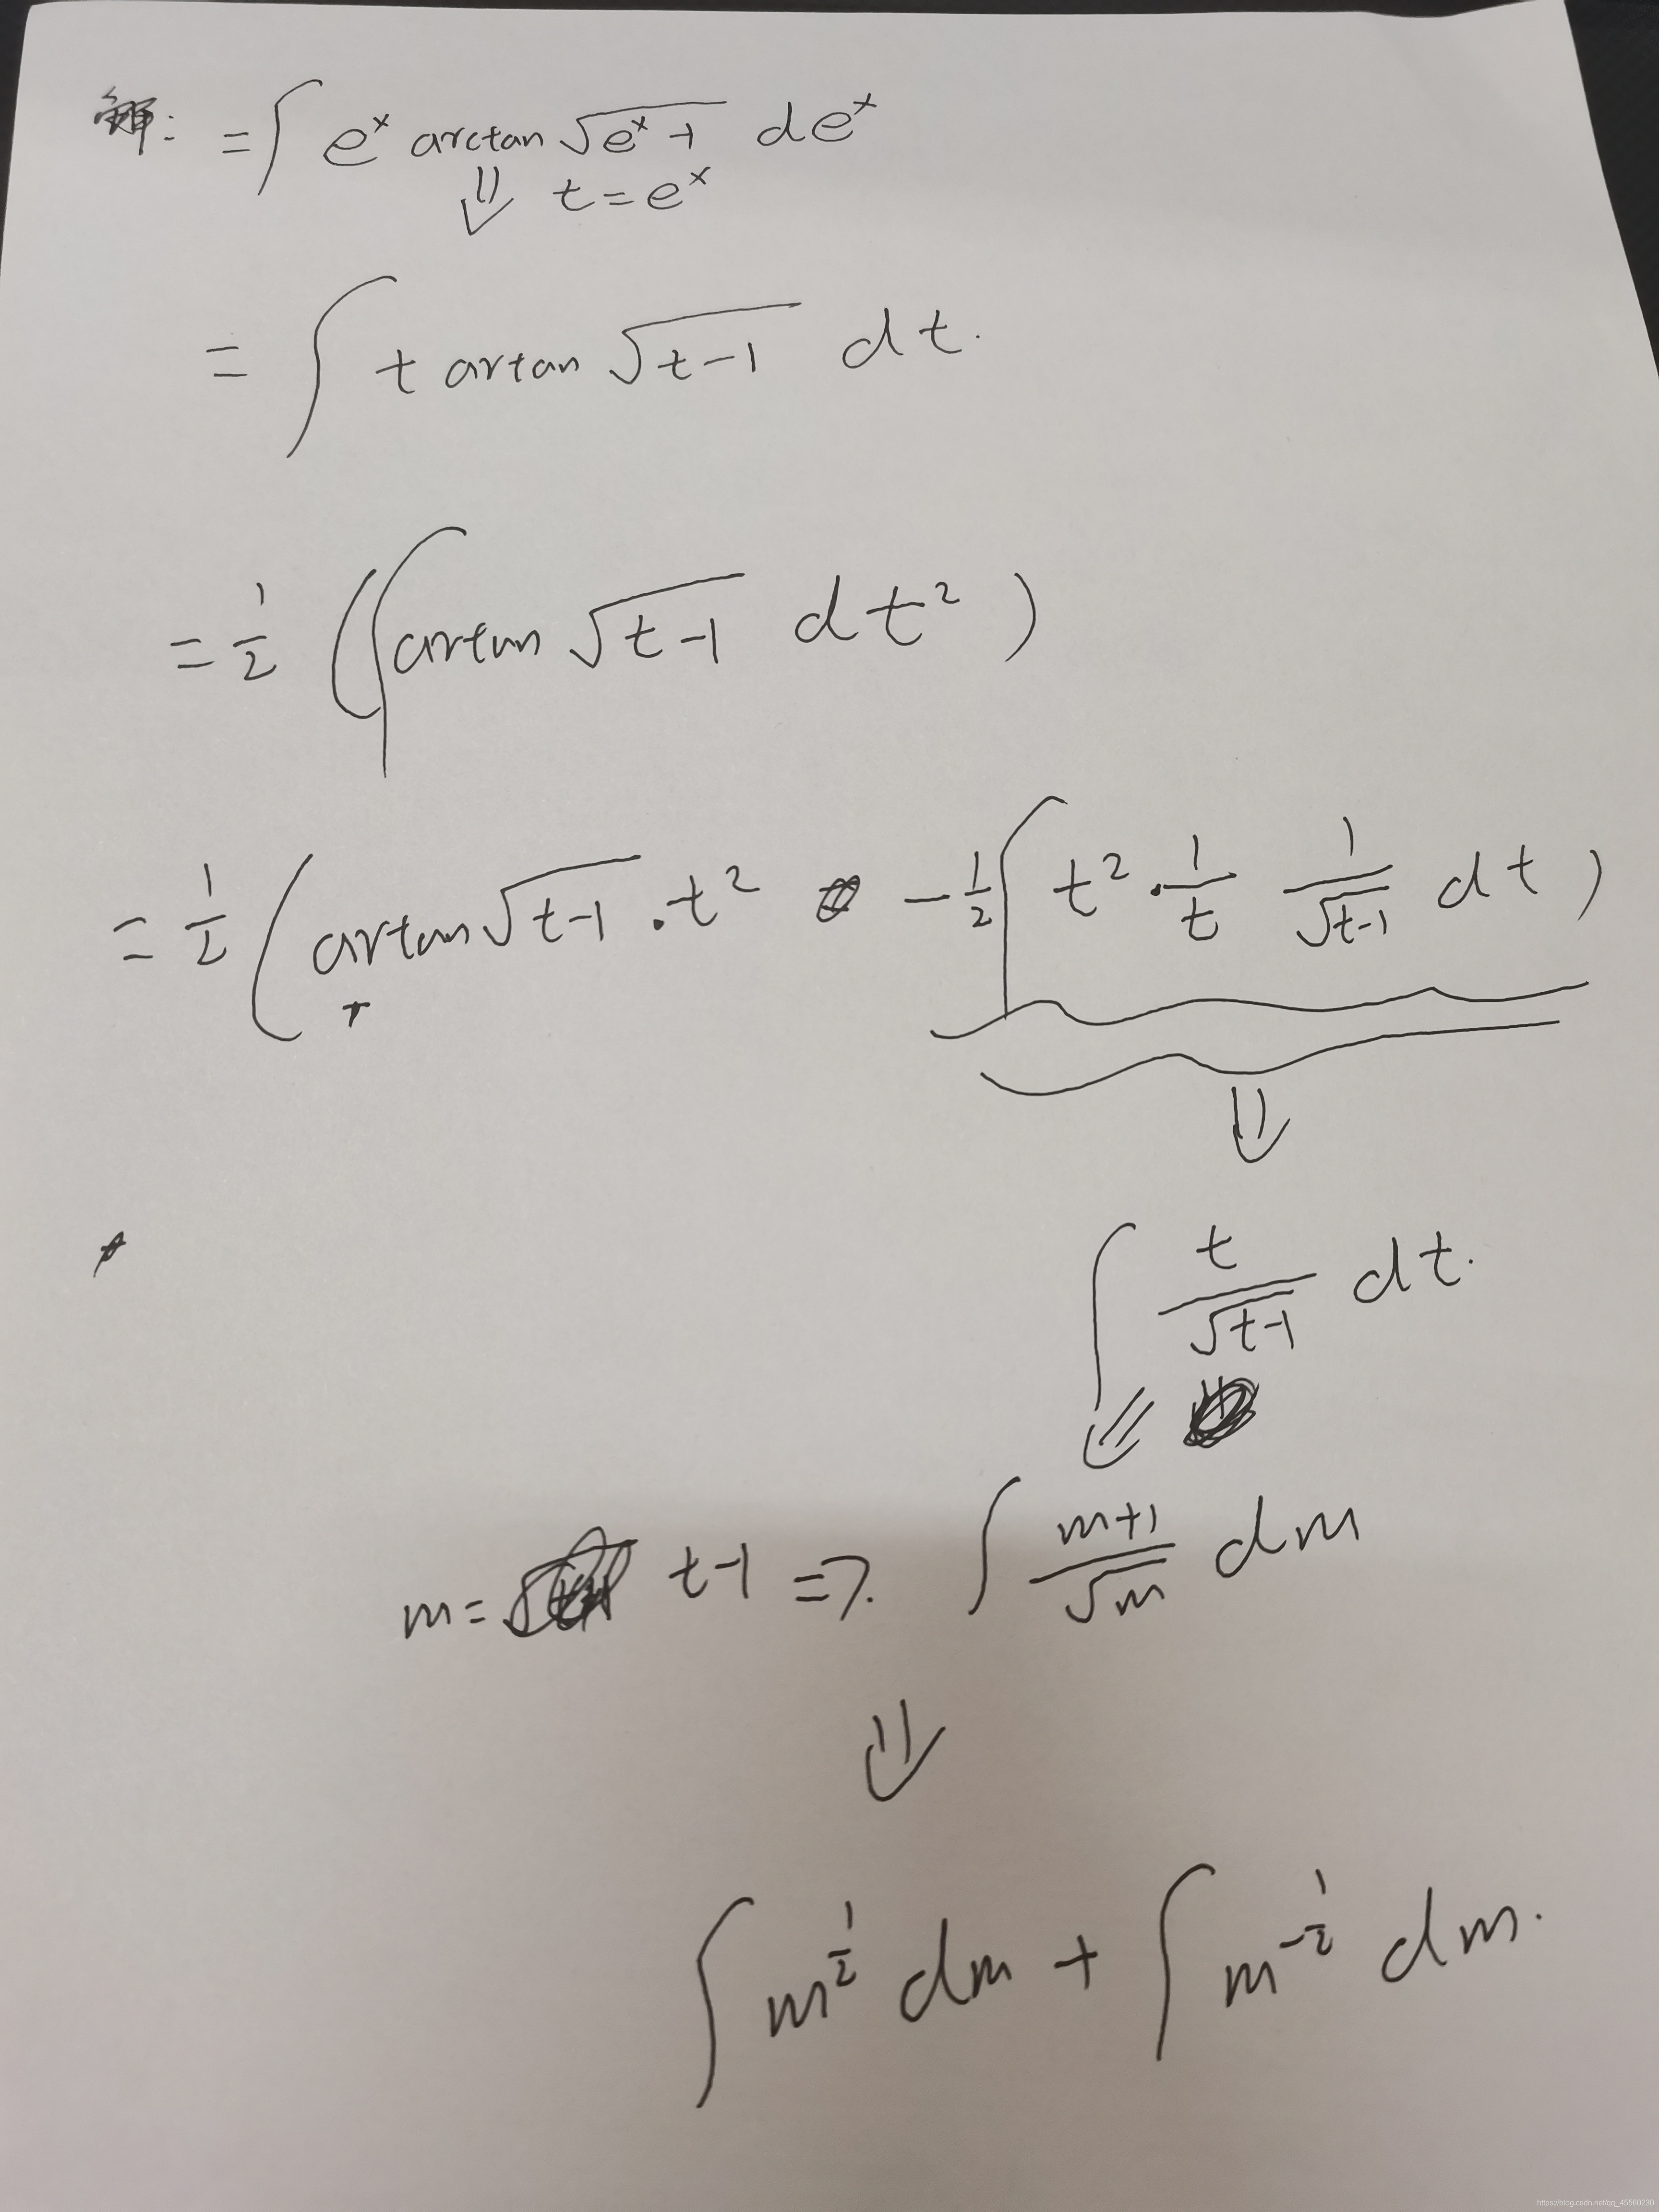 解: = ∫ e^x arctan √(e^x-1) de^x
⇓ t = e^x
= ∫ t artan √(t-1) dt.
= 1/2 ( ∫ artan √(t-1) dt² )
= 1/2 ( artan √(t-1) · t² - 1/2 ∫ t² · 1/t 1/√(t-1) dt )
⇓
∫ t/√(t-1) dt.
⇓
m = t-1 => ∫ (m+1)/√m dm
⇓
∫ m^(1/2) dm + ∫ m^(-1/2) dm.
https://blog.csdn.net/qq_45560230